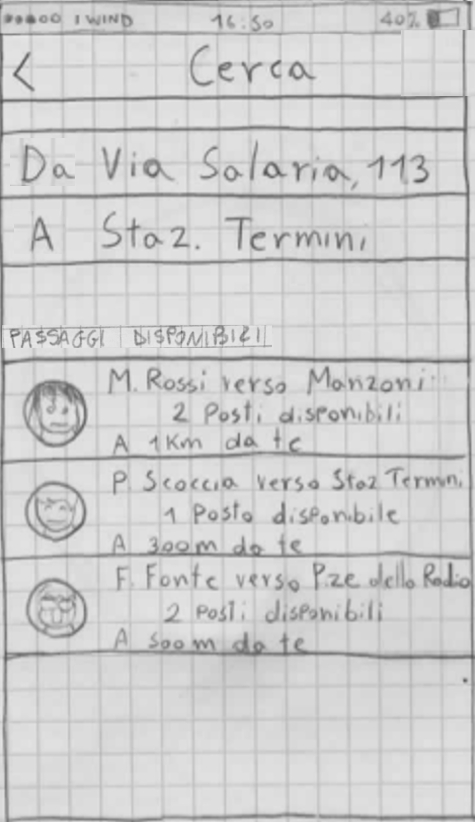 I WIND 16:50 40%
< Cerca
Da Via Salaria, 113
A Staz. Termini
PASSAGGI DISPONIBILI
M. Rossi verso Manzoni
2 Posti disponibili
A 1Km da te
P. Scoccia verso Staz Termini
1 Posto disponibile
A 300m da te
F. Fonte verso P.ze della Radio
2 Posti disponibili
A 500m da te